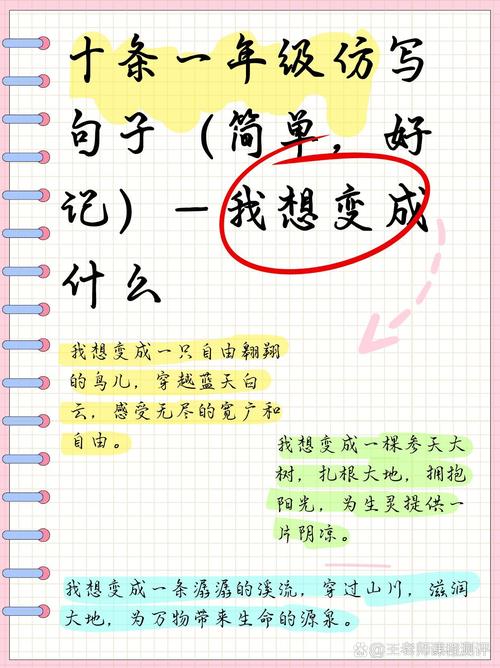 十条一年级仿写
句子（简单，好
记）—我想变成
什么
我想变成一只自由翱翔
的鸟儿，穿越蓝天白
云，感受无尽的宽广和
自由。
我想变成一棵参天大
树，扎根大地，拥抱
阳光，为生灵提供一
片阴凉。
我想变成一条潺潺的溪流，穿过山川，滋润
大地，为万物带来生命的源泉。
@王老师课程测评